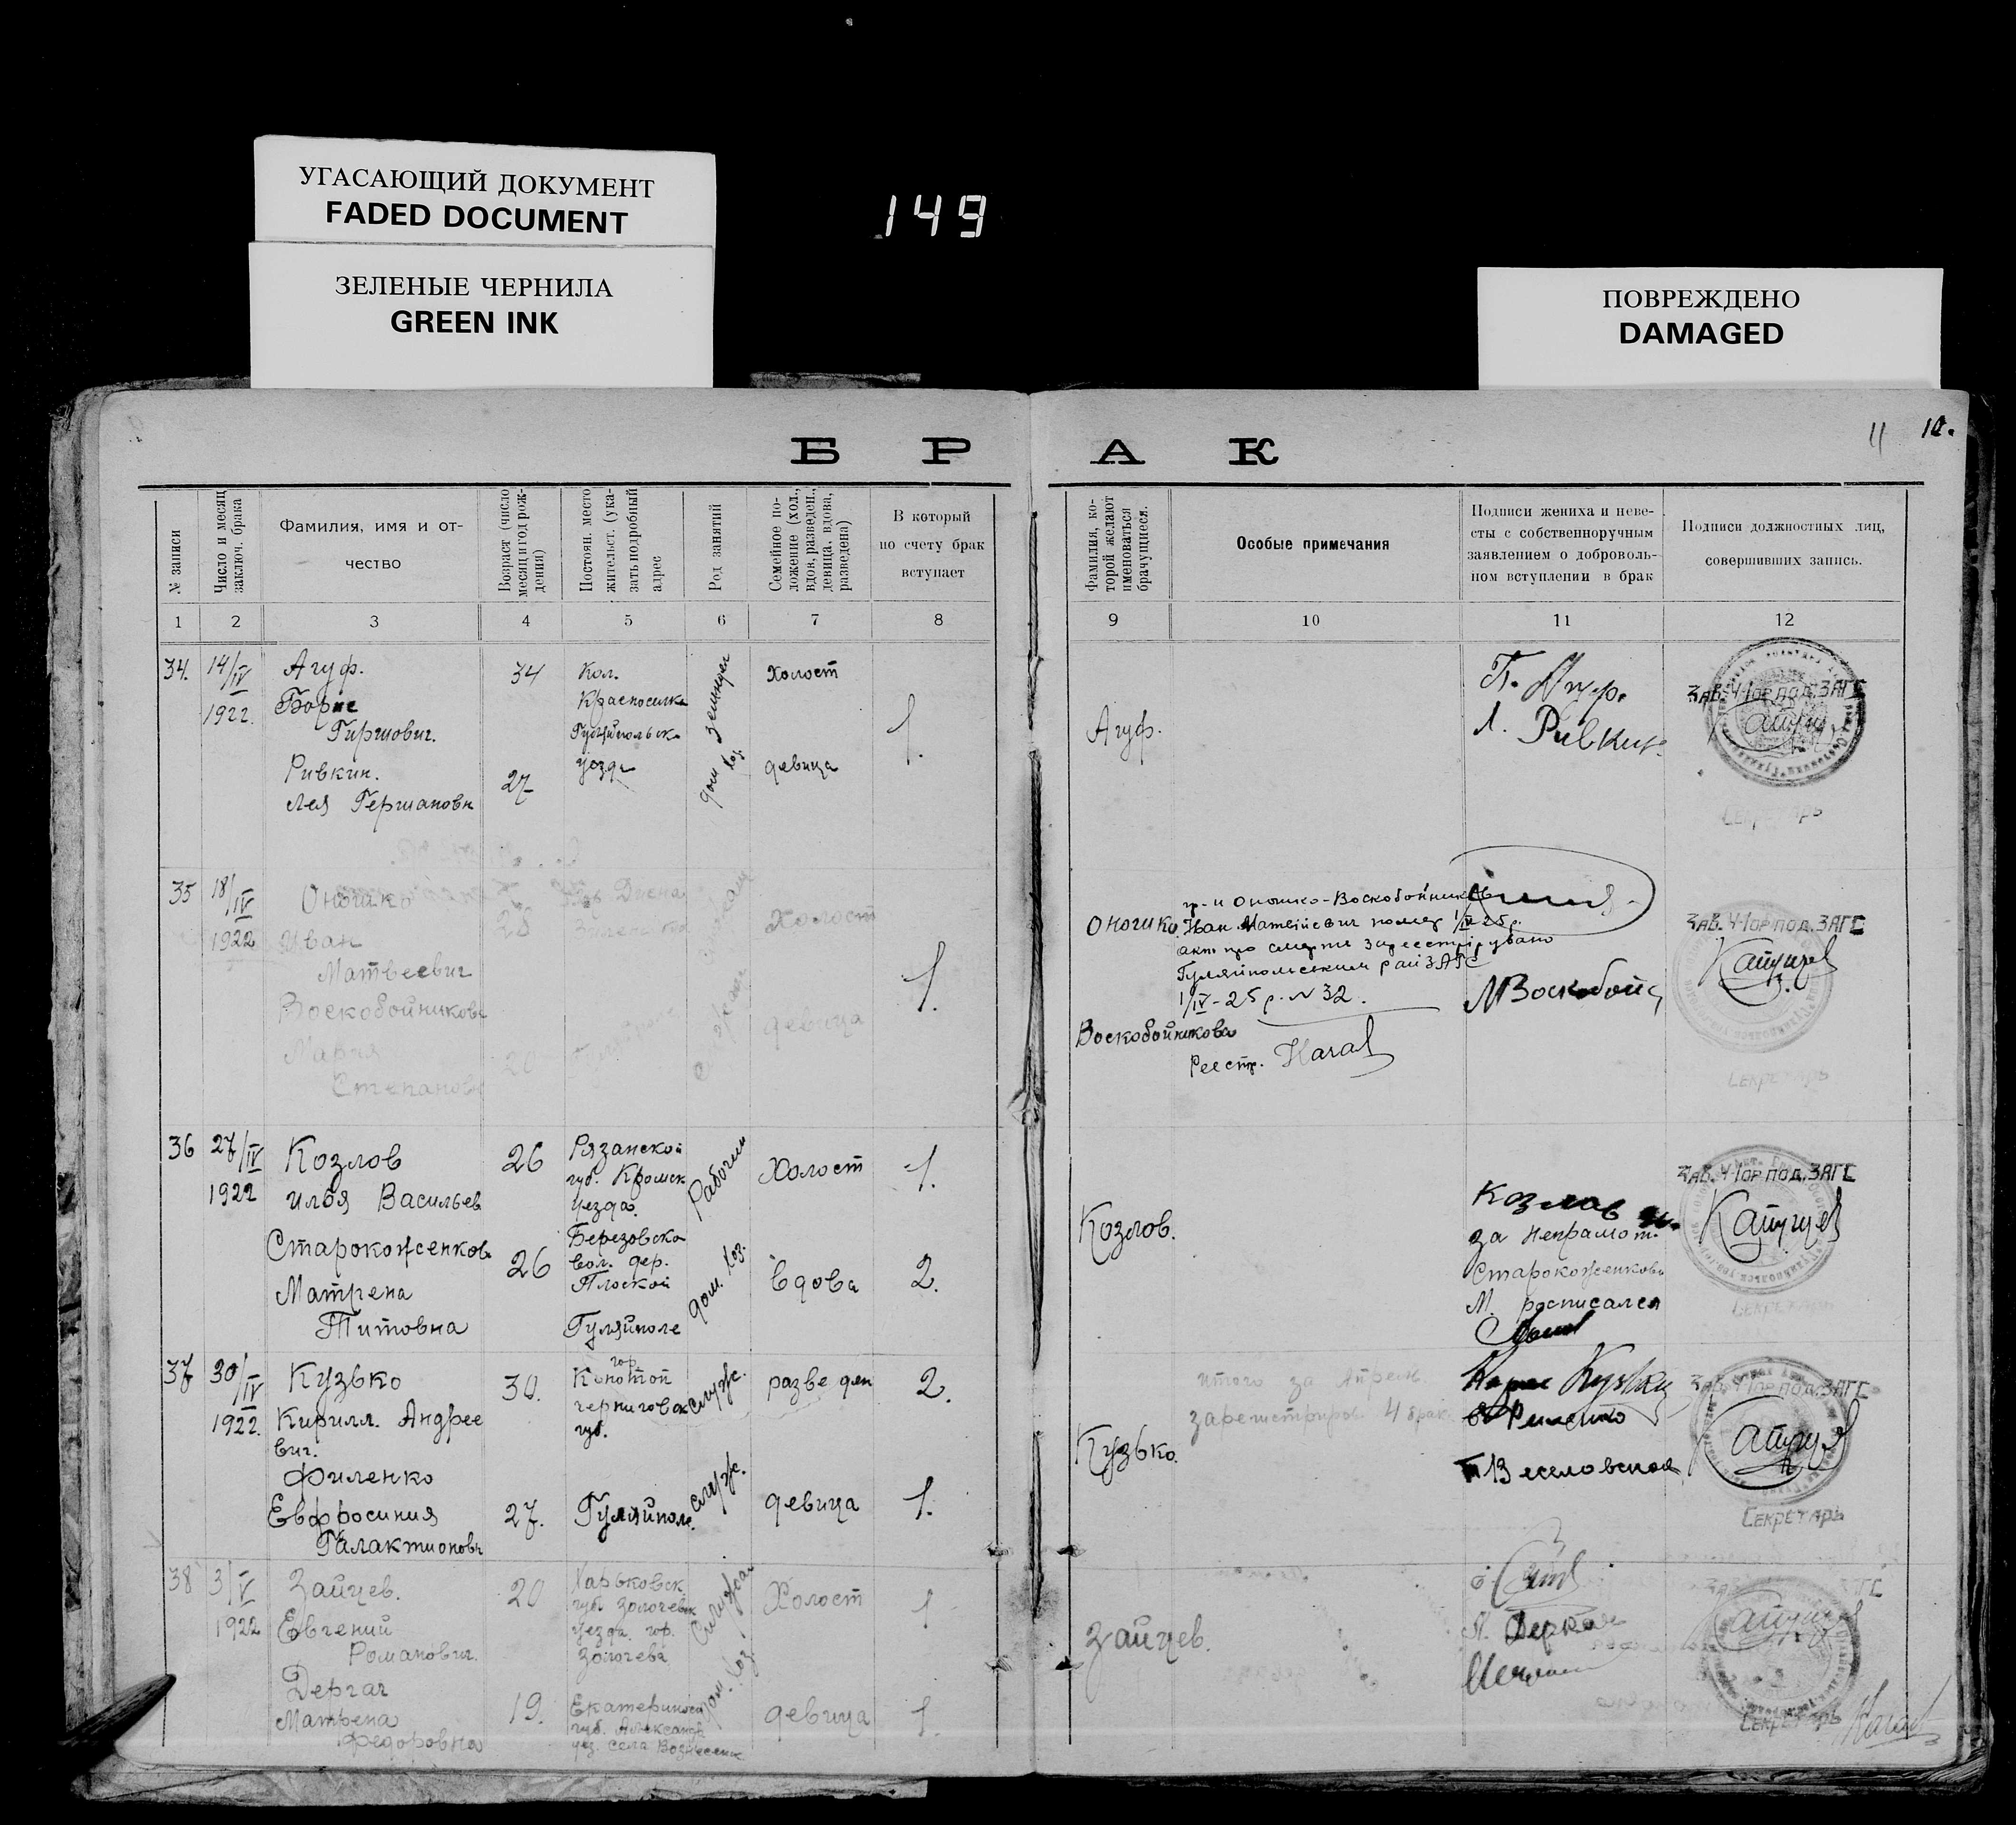 УГАСАЮЩИЙ ДОКУМЕНТ
FADED DOCUMENT
ЗЕЛЕНЫЕ ЧЕРНИЛА
GREEN INK
149
ПОВРЕЖДЕНО
DAMAGED
11
БРАК
№ записи
Число и месяц
заключ. брака
Фамилия, имя и от-
чество
Возраст (число
месяц и год рож-
дения)
Постоян. место
жительст. (ука-
зать подробный
адрес
Род занятий
Семейное по-
ложение (хол.,
вдов, разведен.,
девица, вдова,
разведена)
В который
по счету брак
вступает
Фамилия, ко-
торой желают
именоваться
брачущиеся.
Особые примечания
Подписи жениха и неве-
сты с собственноручным
заявлением о доброволь-
ном вступлении в брак
Подписи должностных лиц,
совершивших запись.
1 2 3 4 5 6 7 8 9 10 11 12
34. 14/IV 1922.
Агуф.
Борис
Гиршович.
34
Кол.
Красноселка
Гуляйпольск
уезда
холост
1.
Ривкин.
Лея Германовн
27
дом хоз.
девица
Агуф.
Г. Агуф.
Л. Ривкин.
Зав. 4-1ор под. ЗАГС
Секретарь
35 18/IV 1922
Оношко
Иван
Матвеевич
28
Холост
1.
Воскобойникова
Мария
Степановн
20
девица
Оношко.
Воскобойникова
гр-н Оношко-Воскобойников
Иван Матвійевич помер 1/IV 25 р.
акт про смерть зареестрірувано
Гуляйпольским рай ЗАГС
1/IV-25 р. N 32.
Реестр.
М Воскобойн
Зав. 4-1ор под. ЗАГС
Секретарь
36 27/IV 1922
Козлов
Илья Васильев
26
Рязанской
губ. Кромск
уезда.
Березовско
вол. дер.
Плоской
Рабочий
Холост
1.
Старокоженков
Матрена
Титовна
26
Гуляйполе
дом. хоз.
вдова
2.
Козлов.
Козлов
за неграмот.
Старокоженкову
М. росписался
Зав. 4-1ор под. ЗАГС
Секретарь
37 30/IV 1922.
Кузько
Кирилл. Андрее
вич.
30.
гор
Конотоп
черниговск
губ.
служ.
разведен
2.
Филенко
Евфросиния
Галактионовн
27.
Гуляйполе.
служ.
девица
1.
Кузько.
итого за Апрель
зарегистриров 4 брак
Кузько
Веселовская
Зав. 4-1ор под. ЗАГС
Секретарь
38 3/V 1922
Зайцев.
Евгений
Романович.
20
Харьковск.
губ. Золочевск
уезда. гор.
Золочева
Служащ
Холост
1
Дергач
Матрена
Федоровна
19.
Екатериносл
губ. Александр
уез. села Вознесенк
дом. хоз
девица
1.
Зайцев.
Секретарь